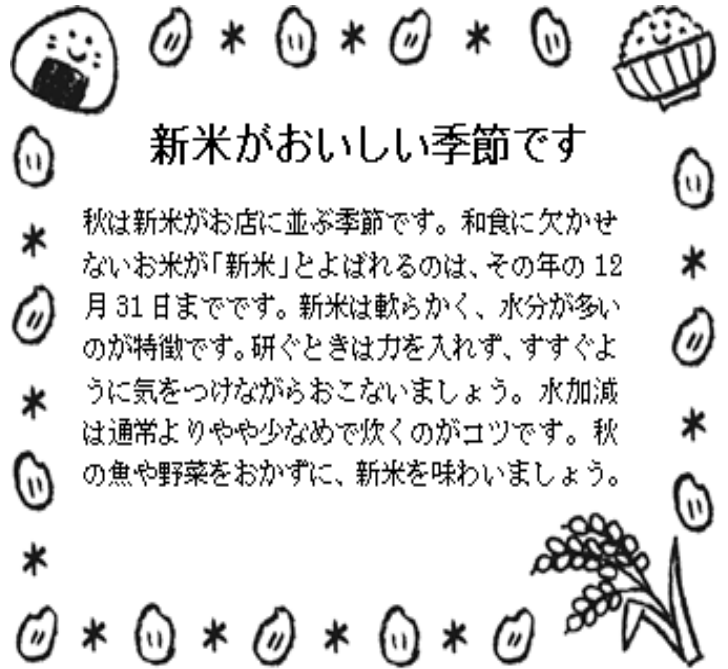 新米がおいしい季節です
秋は新米がお店に並ぶ季節です。和食に欠かせ
ないお米が「新米」とよばれるのは、その年の 12
月 31 日までです。新米は軟らかく、水分が多い
のが特徴です。研ぐときは力を入れず、すすぐよ
うに気をつけながらおこないましょう。水加減
は通常よりやや少なめで炊くのがコツです。秋
の魚や野菜をおかずに、新米を味わいましょう。